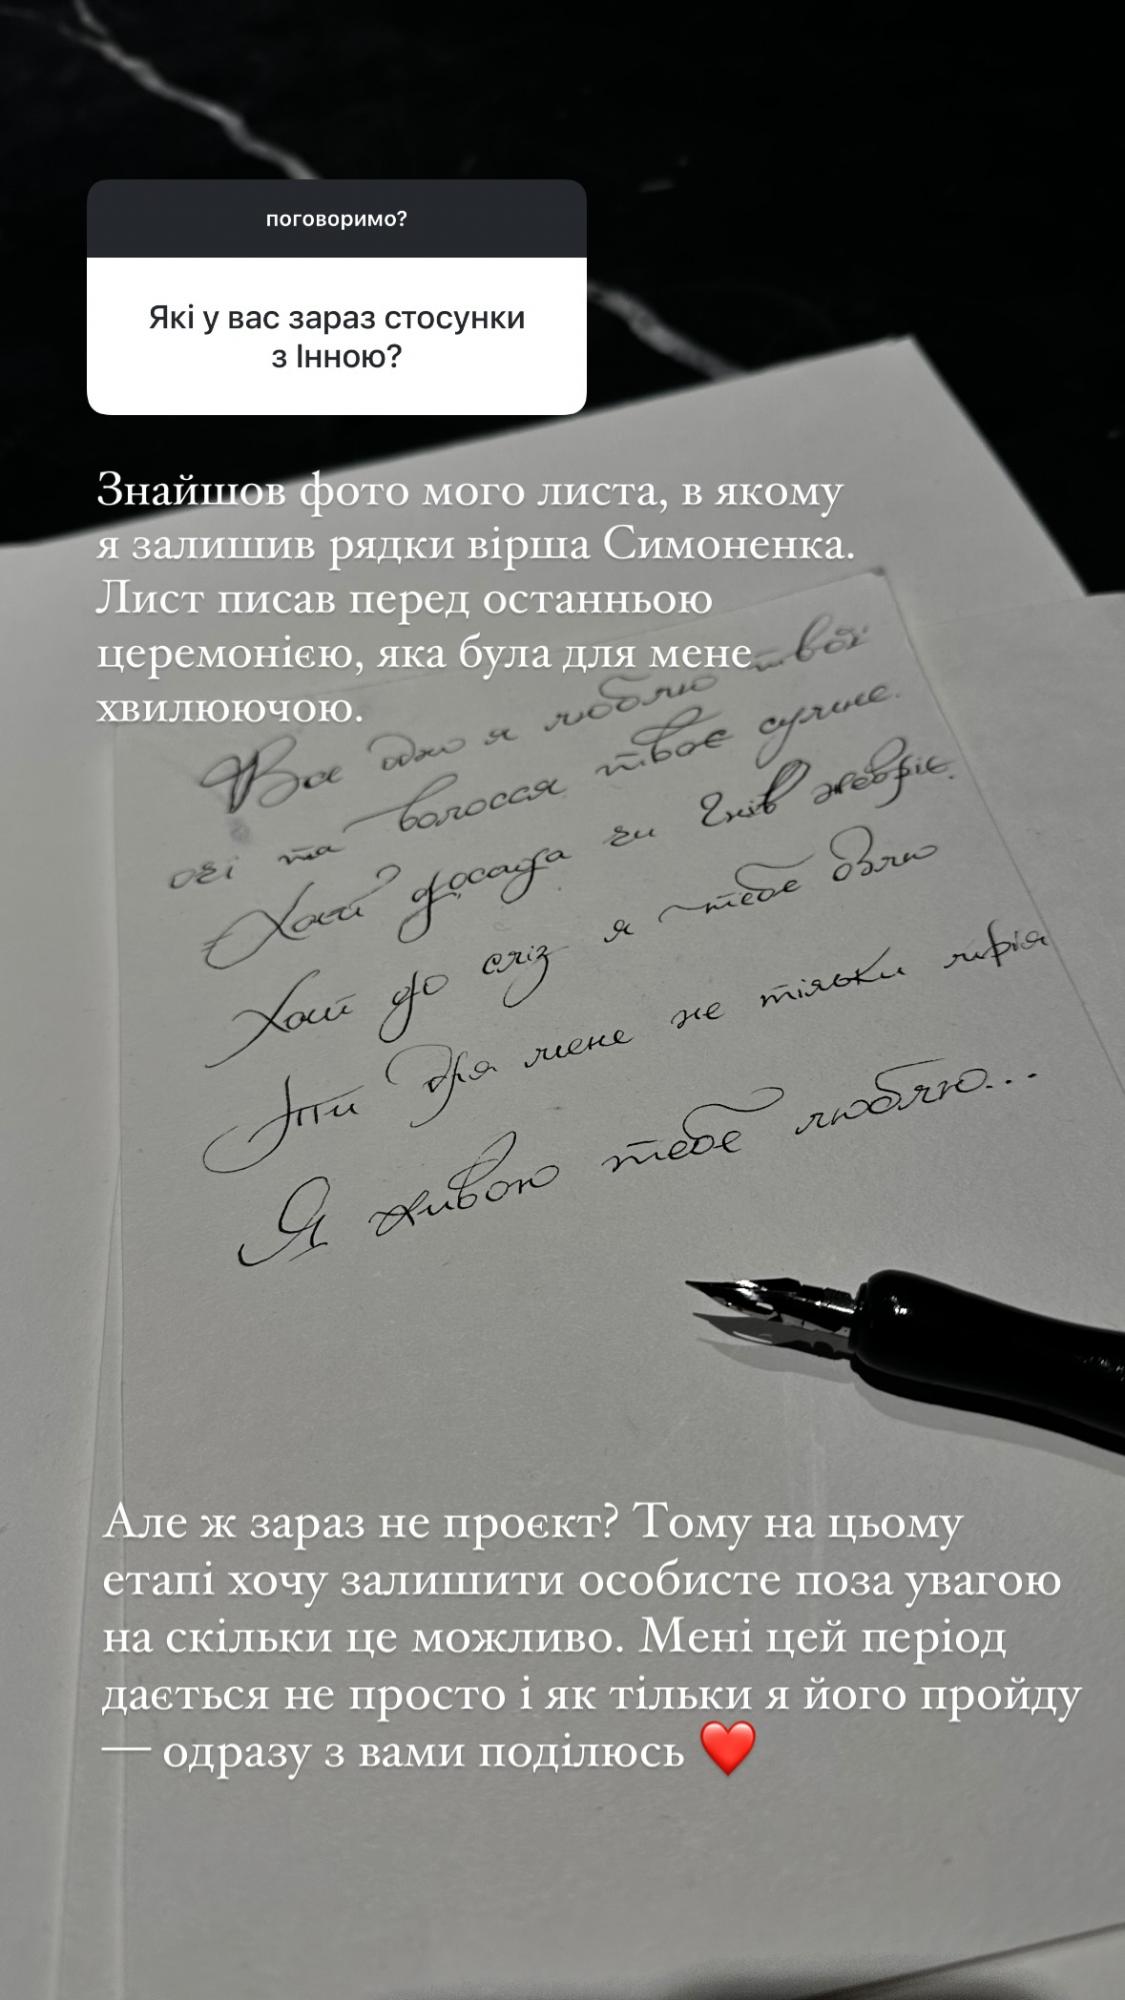 поговоримо?
Які у вас зараз стосунки
з Інною?
Знайшов фото мого листа, в якому
я залишив рядки вірша Симоненка.
Лист писав перед останньою
церемонією, яка була для мене
хвилюючою.
Все одно я люблю твої
очі та волосся твоє сумне.
Хай досада чи гнів жевріє.
Хай до сліз я тебе озлю
Ти для мене не тільки мрія
Я живою тебе люблю...
Але ж зараз не проєкт? Тому на цьому
етапі хочу залишити особисте поза увагою
на скільки це можливо. Мені цей період
дається не просто і як тільки я його пройду
— одразу з вами поділюсь ❤️